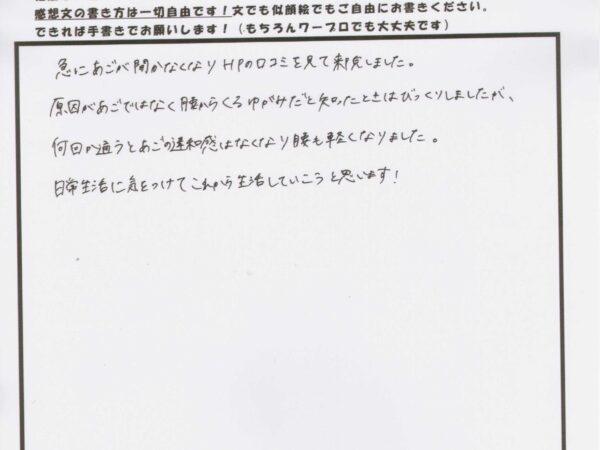 感想文の書き方は一切自由です！文でも似顔絵でもご自由にお書きください。
できれば手書きでお願いします！（もちろんワープロでも大丈夫です）
急にあごが開かなくなりHPの口コミを見て来院しました。
原因があごではなく腰からくるゆがみだと知ったときはびっくりしましたが、
何回か通うとあごの違和感はなくなり腰も軽くなりました。
日常生活に気をつけてこれから生活していこうと思います！